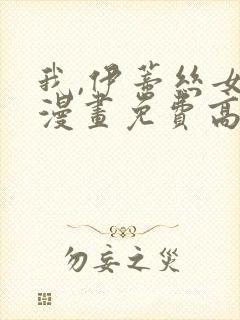 我,伊蒂丝女
漫畫免費高
勿妄之災